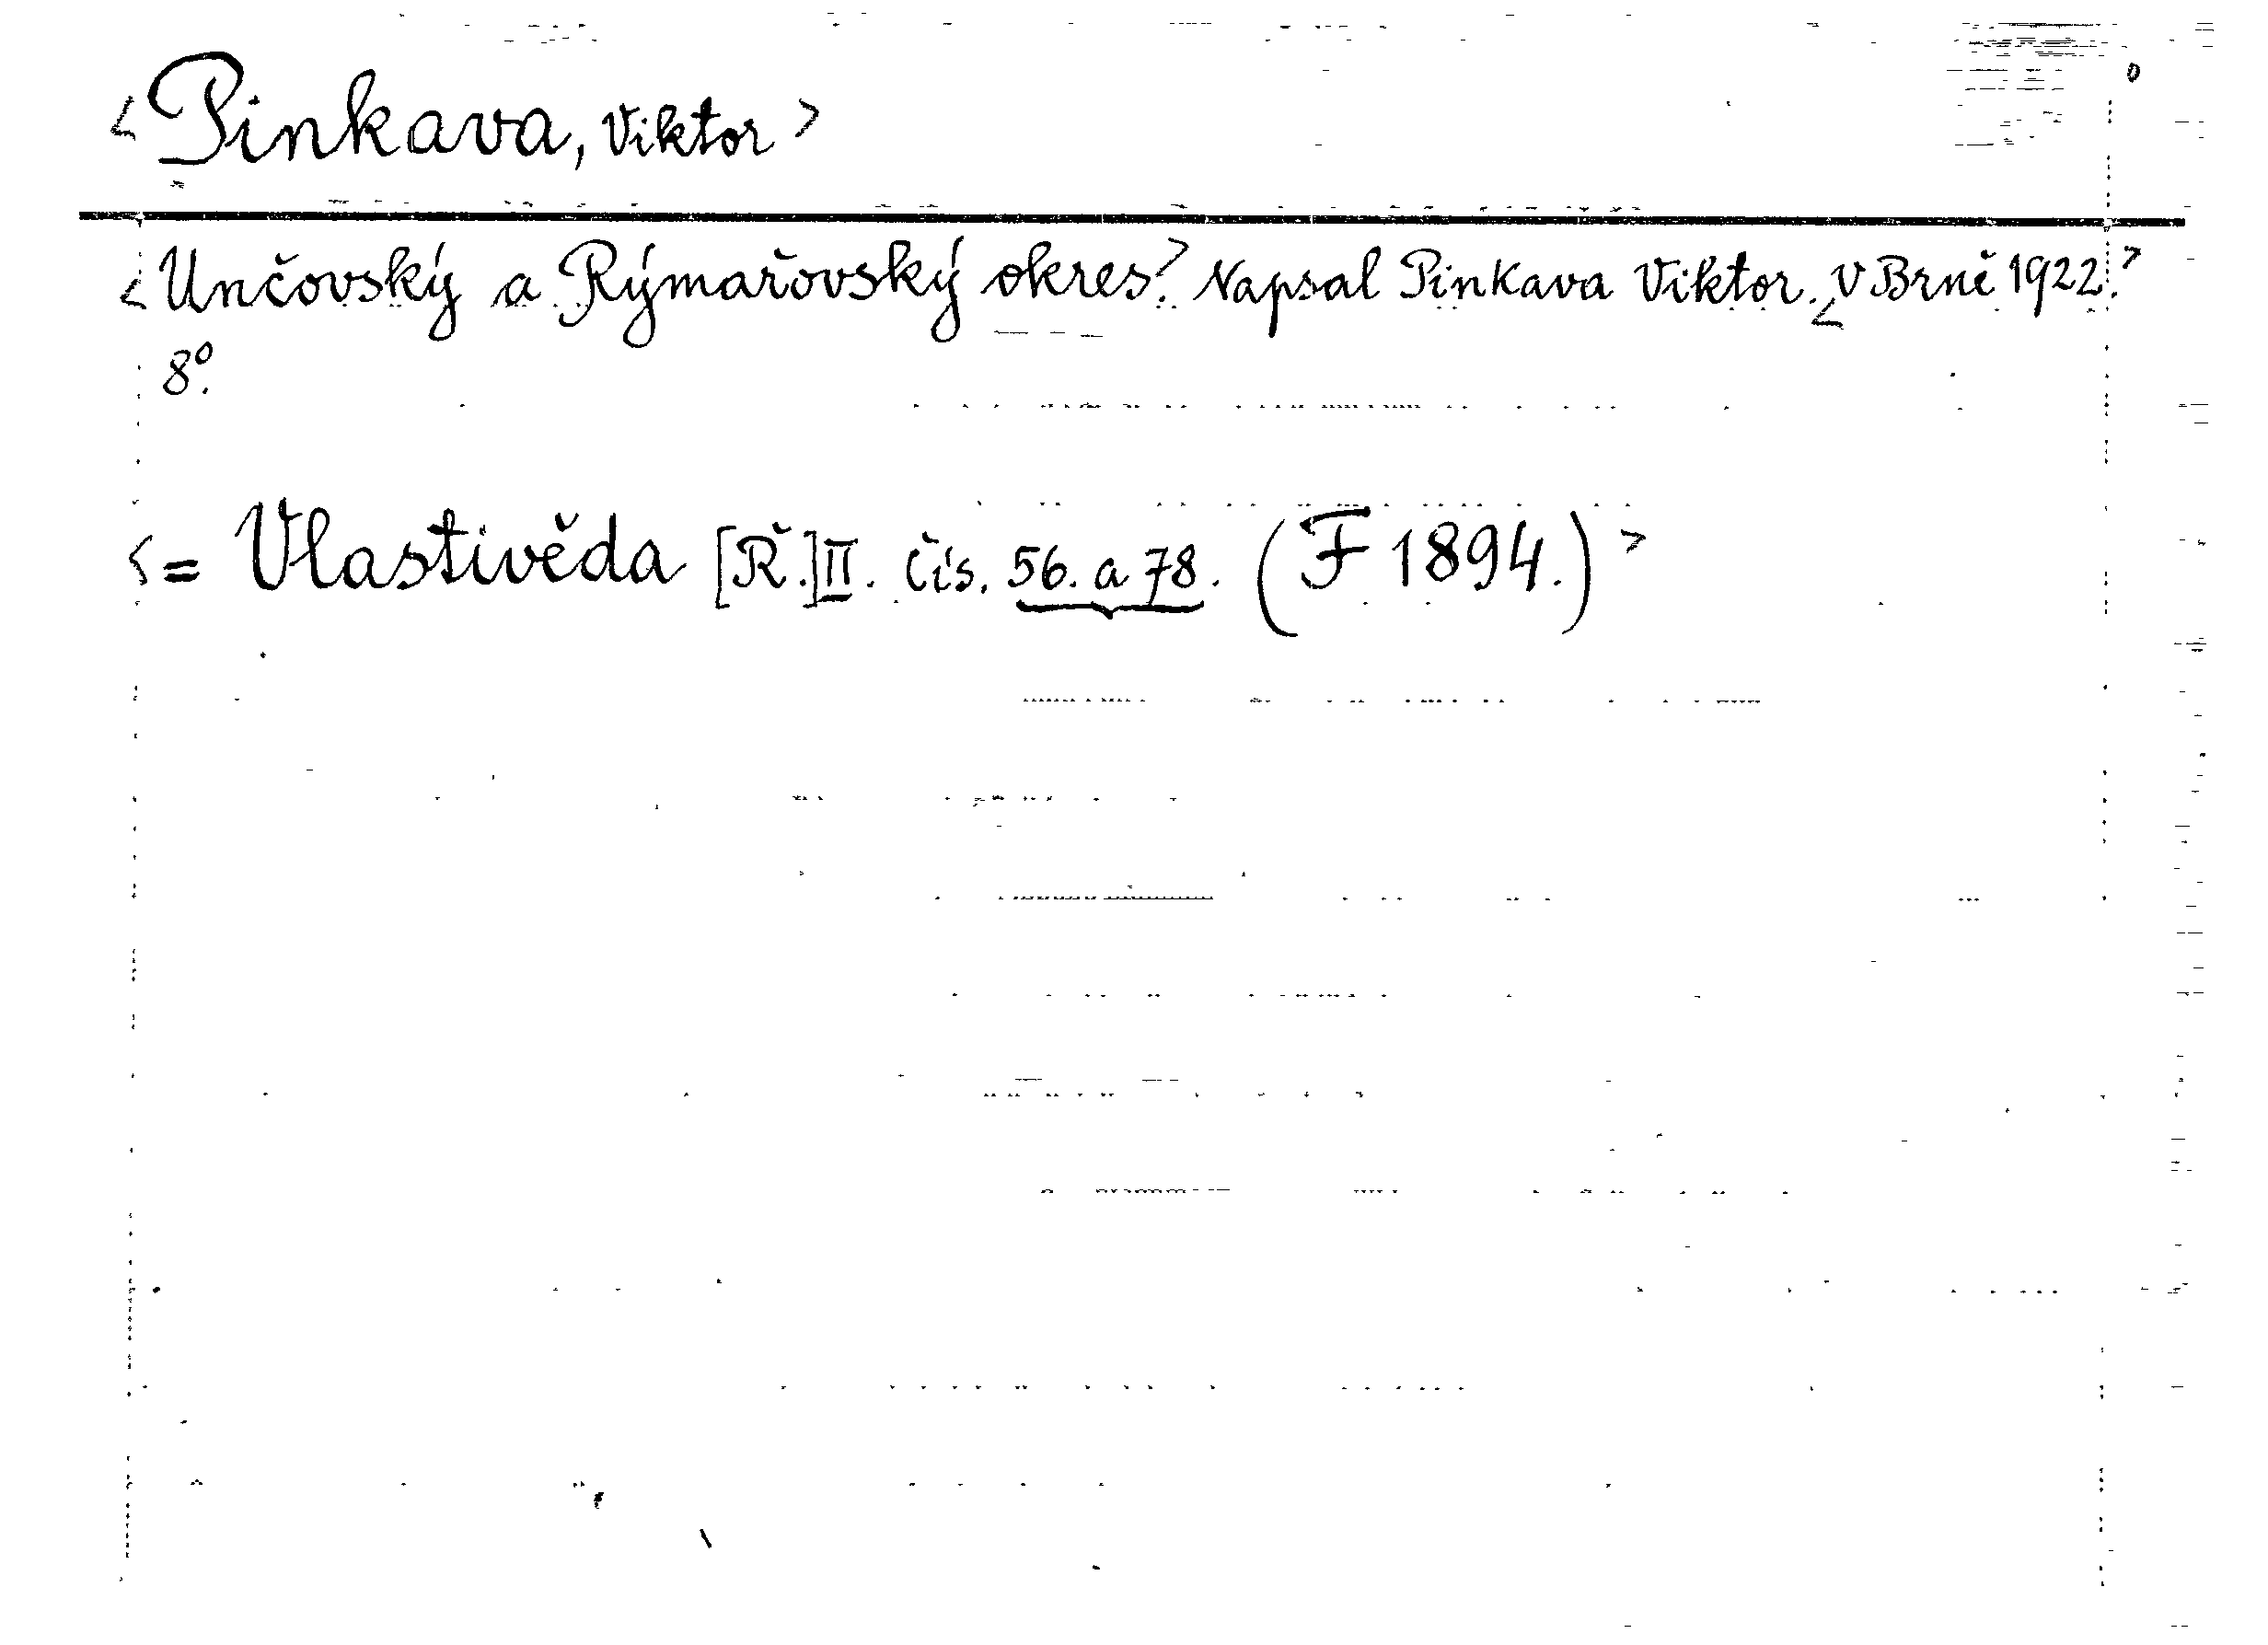 <Pinkava, Viktor>
<Unčovský a Rýmařovský okres.> Napsal Pinkava Viktor. <V Brně 1922.>
8º.
<= Vlastivěda [Ř.] II. čís. 56. a 78. (F 1894.)>